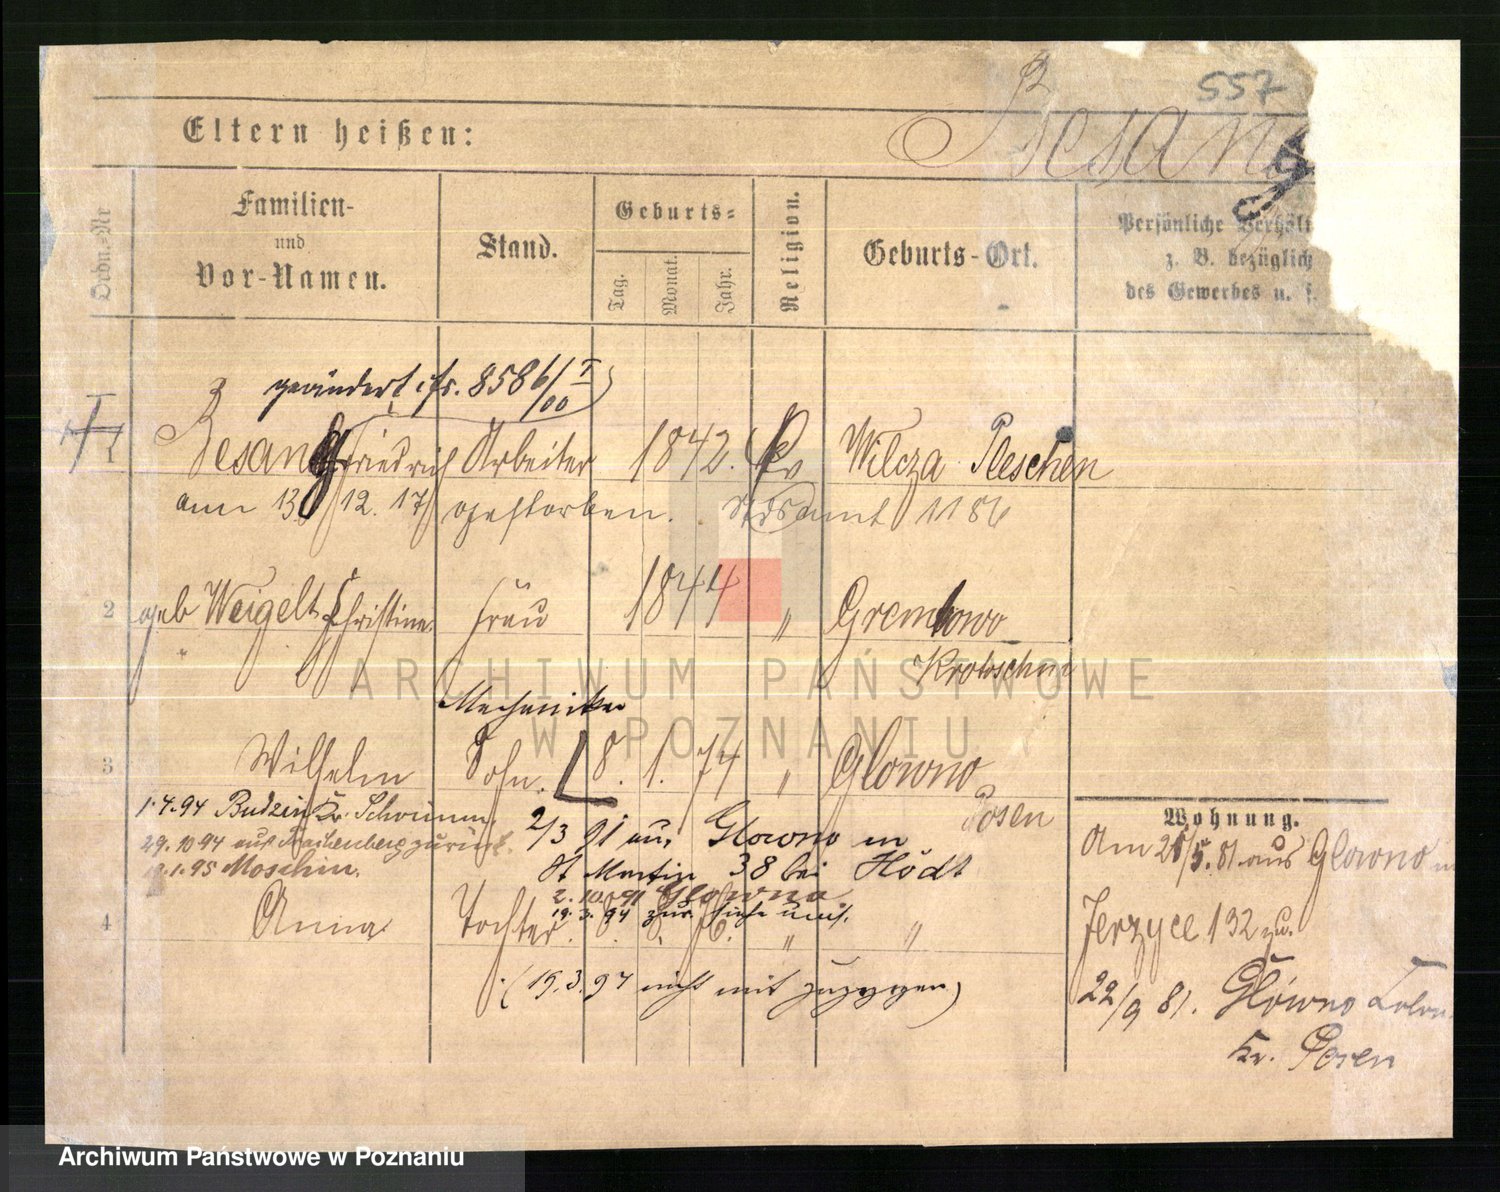 557
Eltern heißen:
Besang
Ordn.-Nr
Familien-
und
Vor-Namen.
Stand.
Geburts-
Tag.
Monat.
Jahr.
Religion.
Geburts-Ort.
Persönliche Verhält
z. B. bezüglich
des Gewerbes u. s.
geändert i fr. 8586/I/00
1 Besang Friedrich Arbeiter 1842. Ev Wilcza Pleschen
am 13. 12. 17 gestorben. Stdsamt 1186
2 geb Weigelt Christine Frau 1844 " Grembowo
Krotoschin
Mechaniker
3 Wilhelm Sohn. 8. 1. 74 " Glowno
Posen
1.4.94 Budzin Kr.
29.10 94 auf zurück.
1.95 Moschin.
2/3 91 aus Glowno in
St Martin 38 bei Hödt
2.10.91 Glowno.
19.3.94 zur.
4 Anna Tochter " "
(19.3.94 nicht mit zugezogen)
Wohnung.
Am /5. 81 aus Glowno in
Jerzyce 132 zu.
22/9 81. Glówno
Kr. Posen
ARCHIWUM PAŃSTWOWE
W POZNANIU
Archiwum Państwowe w Poznaniu